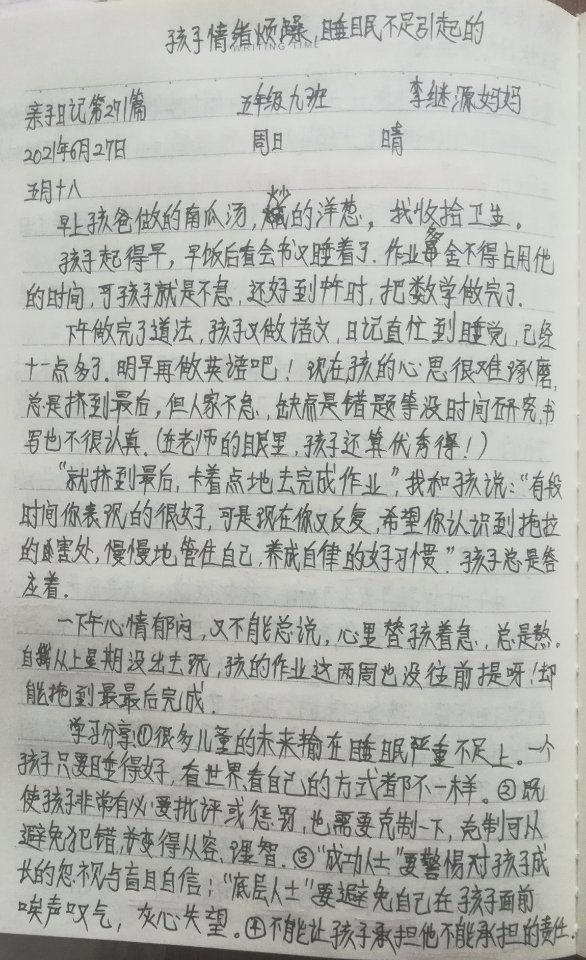 孩子情绪烦躁,睡眠不足引起的
WRITING TIME
亲子日记第271篇 五年级九班 李继源妈妈
2021年6月27日 周日 晴
五月十八
早上孩爸做的南瓜汤,炒的洋葱,我收拾卫生。
孩子起得早,早饭后看会书又睡着了.作业多舍不得占用他
的时间,可孩子就是不急,还好到午时,把数学做完了.
下午做完了道法,孩子又做语文,日记直忙到睡觉,已经
十一点多了.明早再做英语吧!现在孩的心思很难琢磨,
总是挤到最后,但人家不急,缺点是错题等没时间研究,书
写也不很认真.(在老师的眼里,孩子还算优秀得!)
“就挤到最后,卡着点地去完成作业”,我和孩说:“有段
时间你表现的很好,可是现在你又反复,希望你认识到拖拉
的害处,慢慢地管住自己,养成自律的好习惯”孩子总是答
应着.
一下午心情郁闷,又不能总说,心里替孩着急,总是熬.
自从上星期没出去玩,孩的作业这两周也没往前提呀!却
能拖到最最后完成.
学习分享①很多儿童的未来输在睡眠严重不足上。一个
孩子只要睡得好,看世界看自己的方式都不一样。②既
使孩子非常有必要批评或惩罚,也需要克制一下,克制可以
避免犯错,并变得从容、理智.③“成功人士”要警惕对孩子成
长的忽视与盲目自信;“底层人士”要避免自己在孩子面前
唉声叹气,灰心失望。④不能让孩子承担他不能承担的责任.